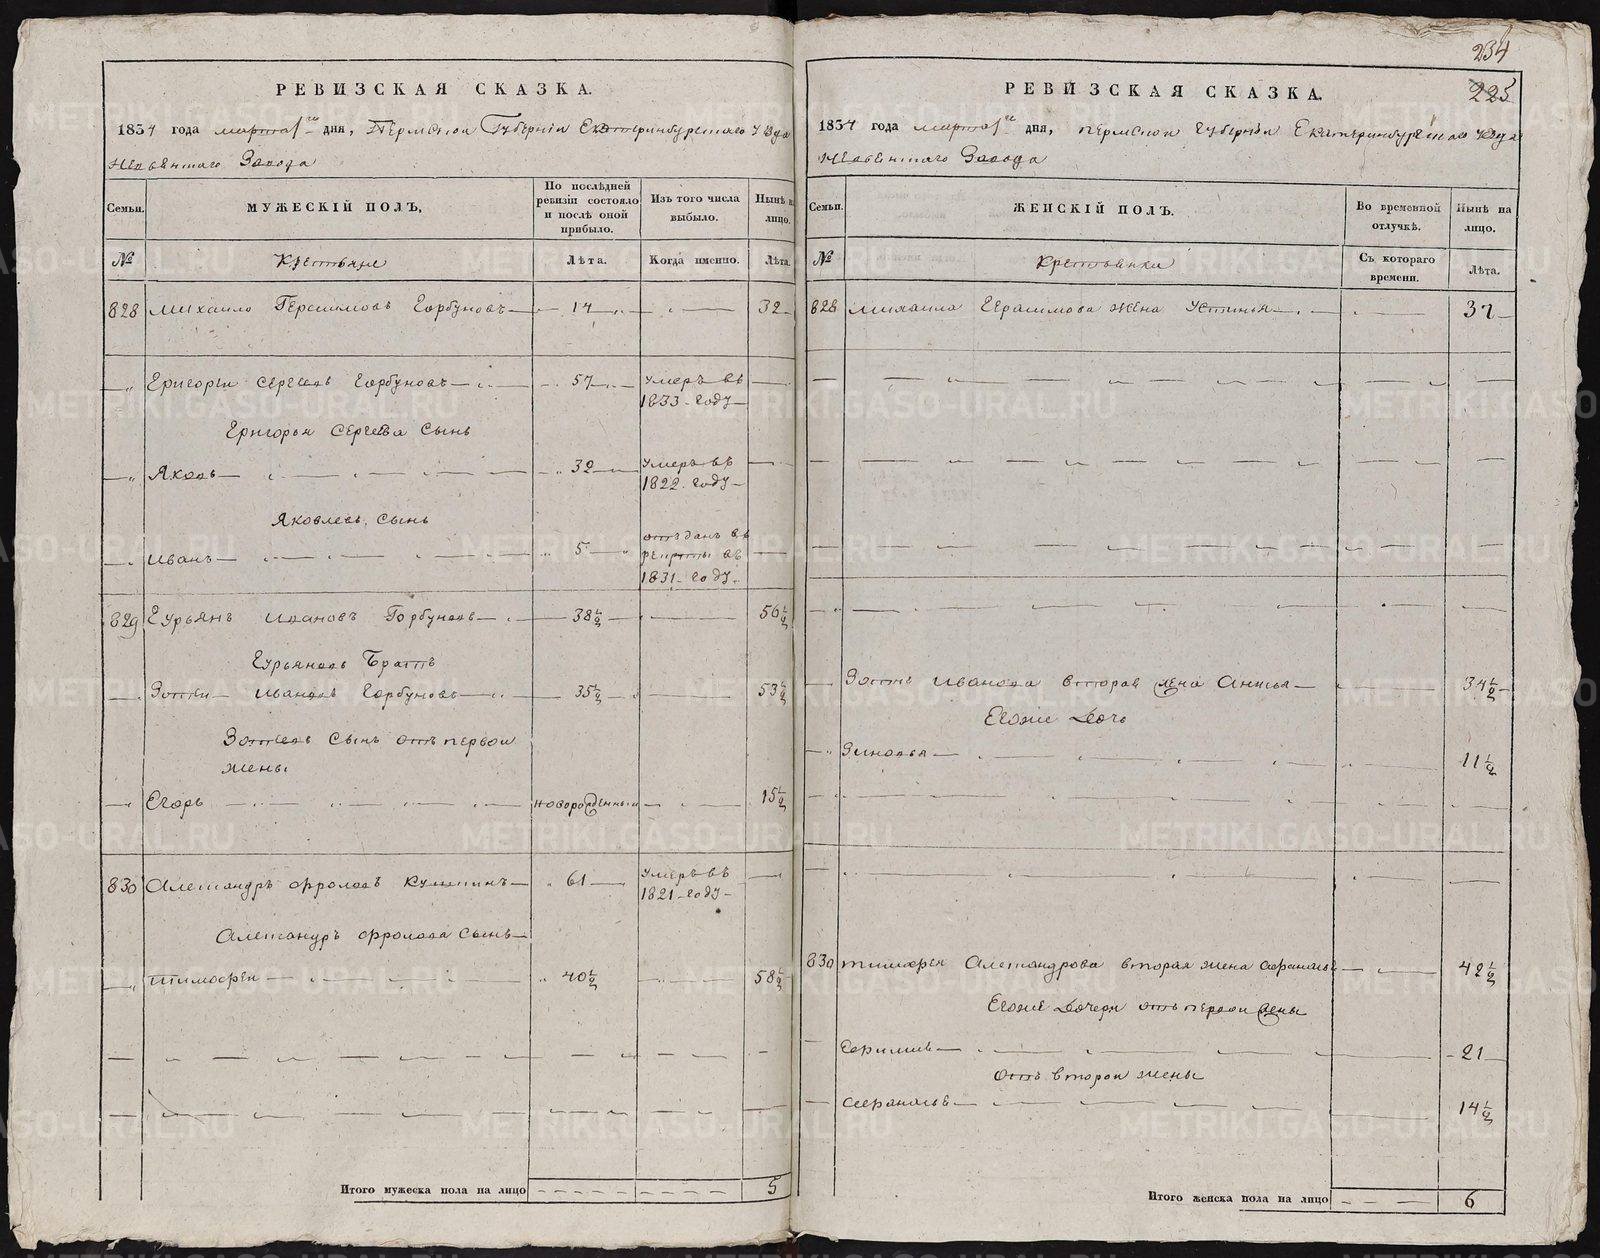 РЕВИЗСКАЯ СКАЗКА.
1834 года марта 1го дня, Пермской Губернiи Екатеринбургскаго уезда
Невьянскаго Завода
Семьи.
МУЖЕСКIЙ ПОЛЪ.
По послѣдней ревизiи состояло и послѣ оной прибыло.
Изъ того числа выбыло.
Нынѣ на лицо.
№
Крестьяне
Лѣта.
Когда именно.
Лѣта.
828 Михаило Герасимовъ Горбуновъ 14 32
Григореи Сергеевъ Горбуновъ 57 умеръ въ 1833 году
Григорья Сергеева сынъ
Яковъ 32 умеръ въ 1822 году
Яковлевъ сынъ
Иванъ 5 отъданъ въ рекруты въ 1831 году
829 Гурьянъ Ивановъ Горбуновъ 38½ 56½
Гурьяновъ Братъ
Зотеи Ивановъ Горбуновъ 35½ 53½
Зотеевъ сынъ отъ первои
жены
Егоръ новорожденныи 15½
830 Александръ Фроловъ 61 умеръ въ 1821 году
Александръ Фролова сынъ
Тимофеи 40½ 58½
Итого мужеска пола на лицо 5
234
225
РЕВИЗСКАЯ СКАЗКА.
1834 года марта 1го дня, Пермской Губернiи Екатеринбургскаго уезда
Невьянскаго Завода
Семьи.
ЖЕНСКIЙ ПОЛЪ.
Во временной отлучкѣ.
Нынѣ на лицо.
№
Крестьянки
Съ котораго времени.
Лѣта.
828 Михаила Герасимова жена Устинья 37
Зотъ Иванова вторая жена Анисья 34½
Егоже дочь
Зиновья 11½
830 Тимофея Александрова вторая жена 42½
Егоже дочери отъ первои жены
21
отъ второи жены
14½
Итого женска пола на лицо 6
METRIKI.GASO-URAL.RU